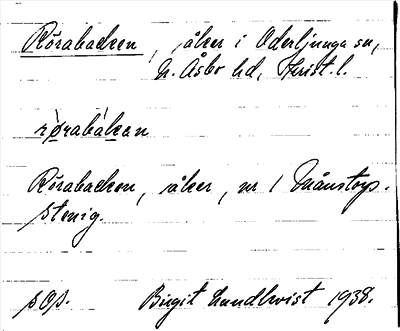 Rörabacken, åker i Oderljunga sn,
N. Åsbo hd, Krist. l.
rørabakan
Rörabacken, åker, nr 1 Månstorp.
stenig.
Birgit Lundkvist 1938.